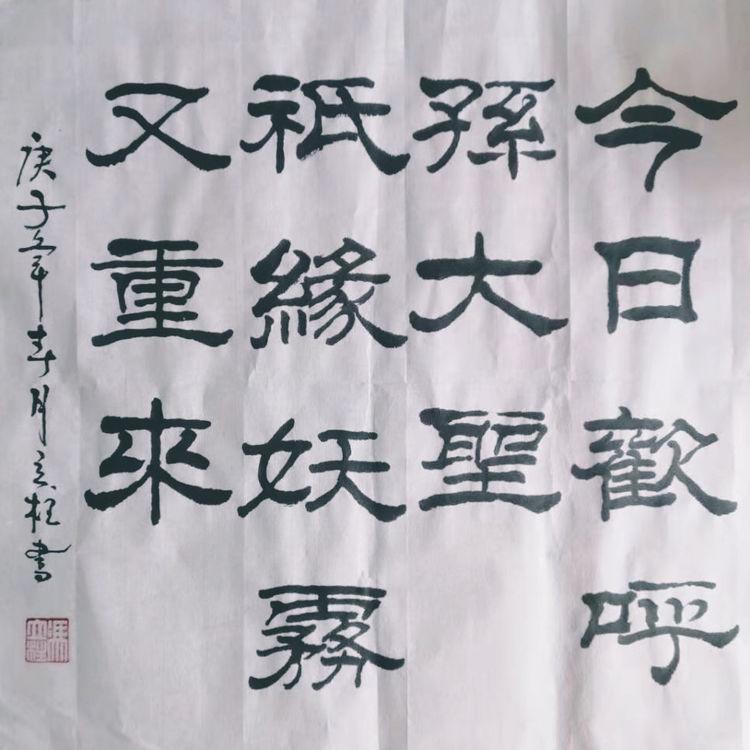 今日歡呼
孫大聖
祇緣妖霧
又重來
庚子年春月立柱書